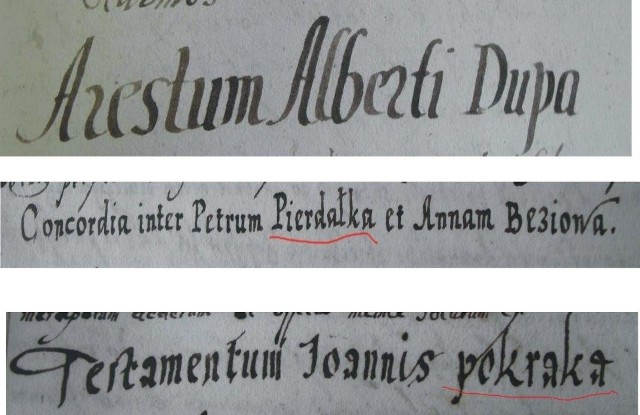 Arestum Alberti Dupa
Concordia inter Petrum Pierdałka et Annam Beziowa.
Testamentum Joannis pokraka